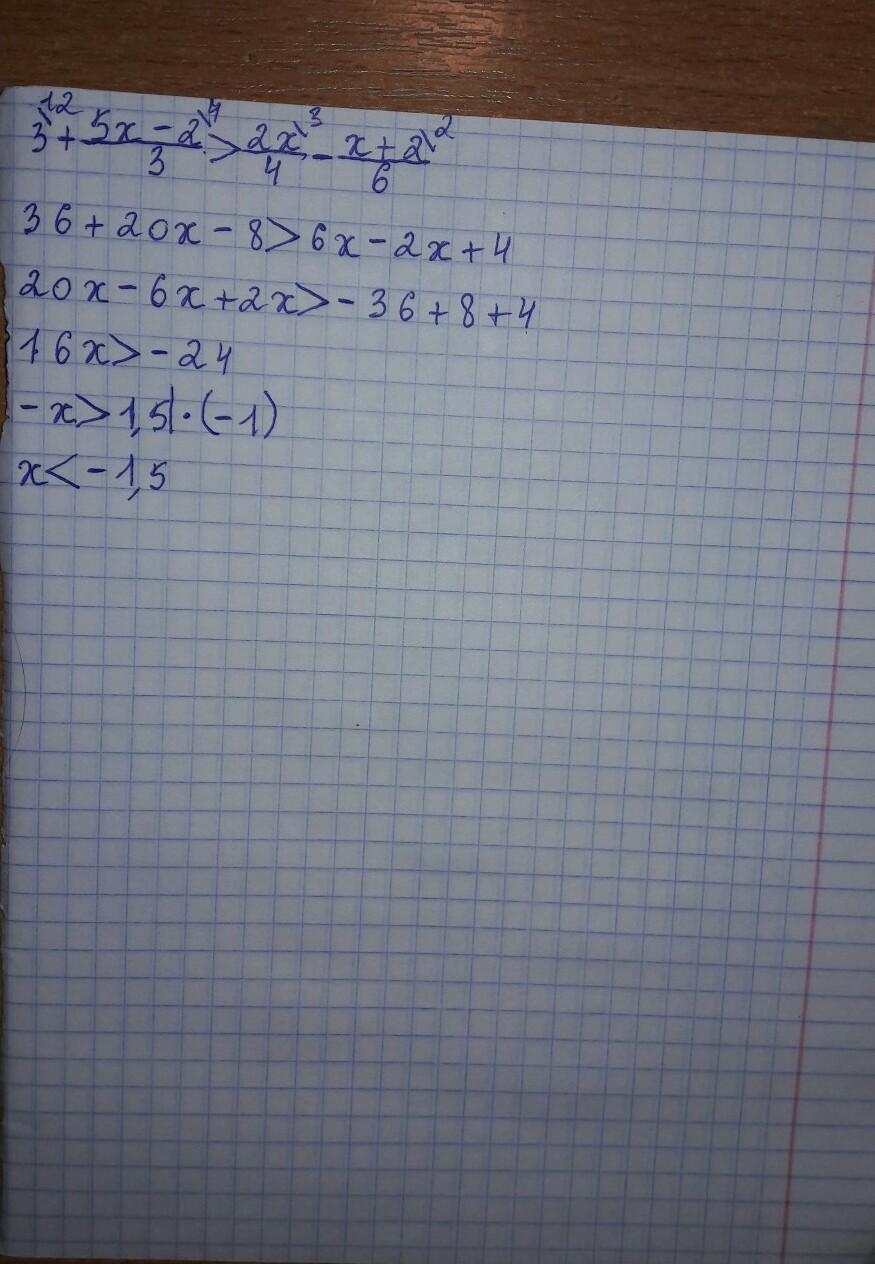 3\12 + 5x-2\4/3 > 2x\3/4 - x+2\2/6
36+20x-8>6x-2x+4
20x-6x+2x>-36+8+4
16x>-24
-x>1,5|·(-1)
x<-1,5